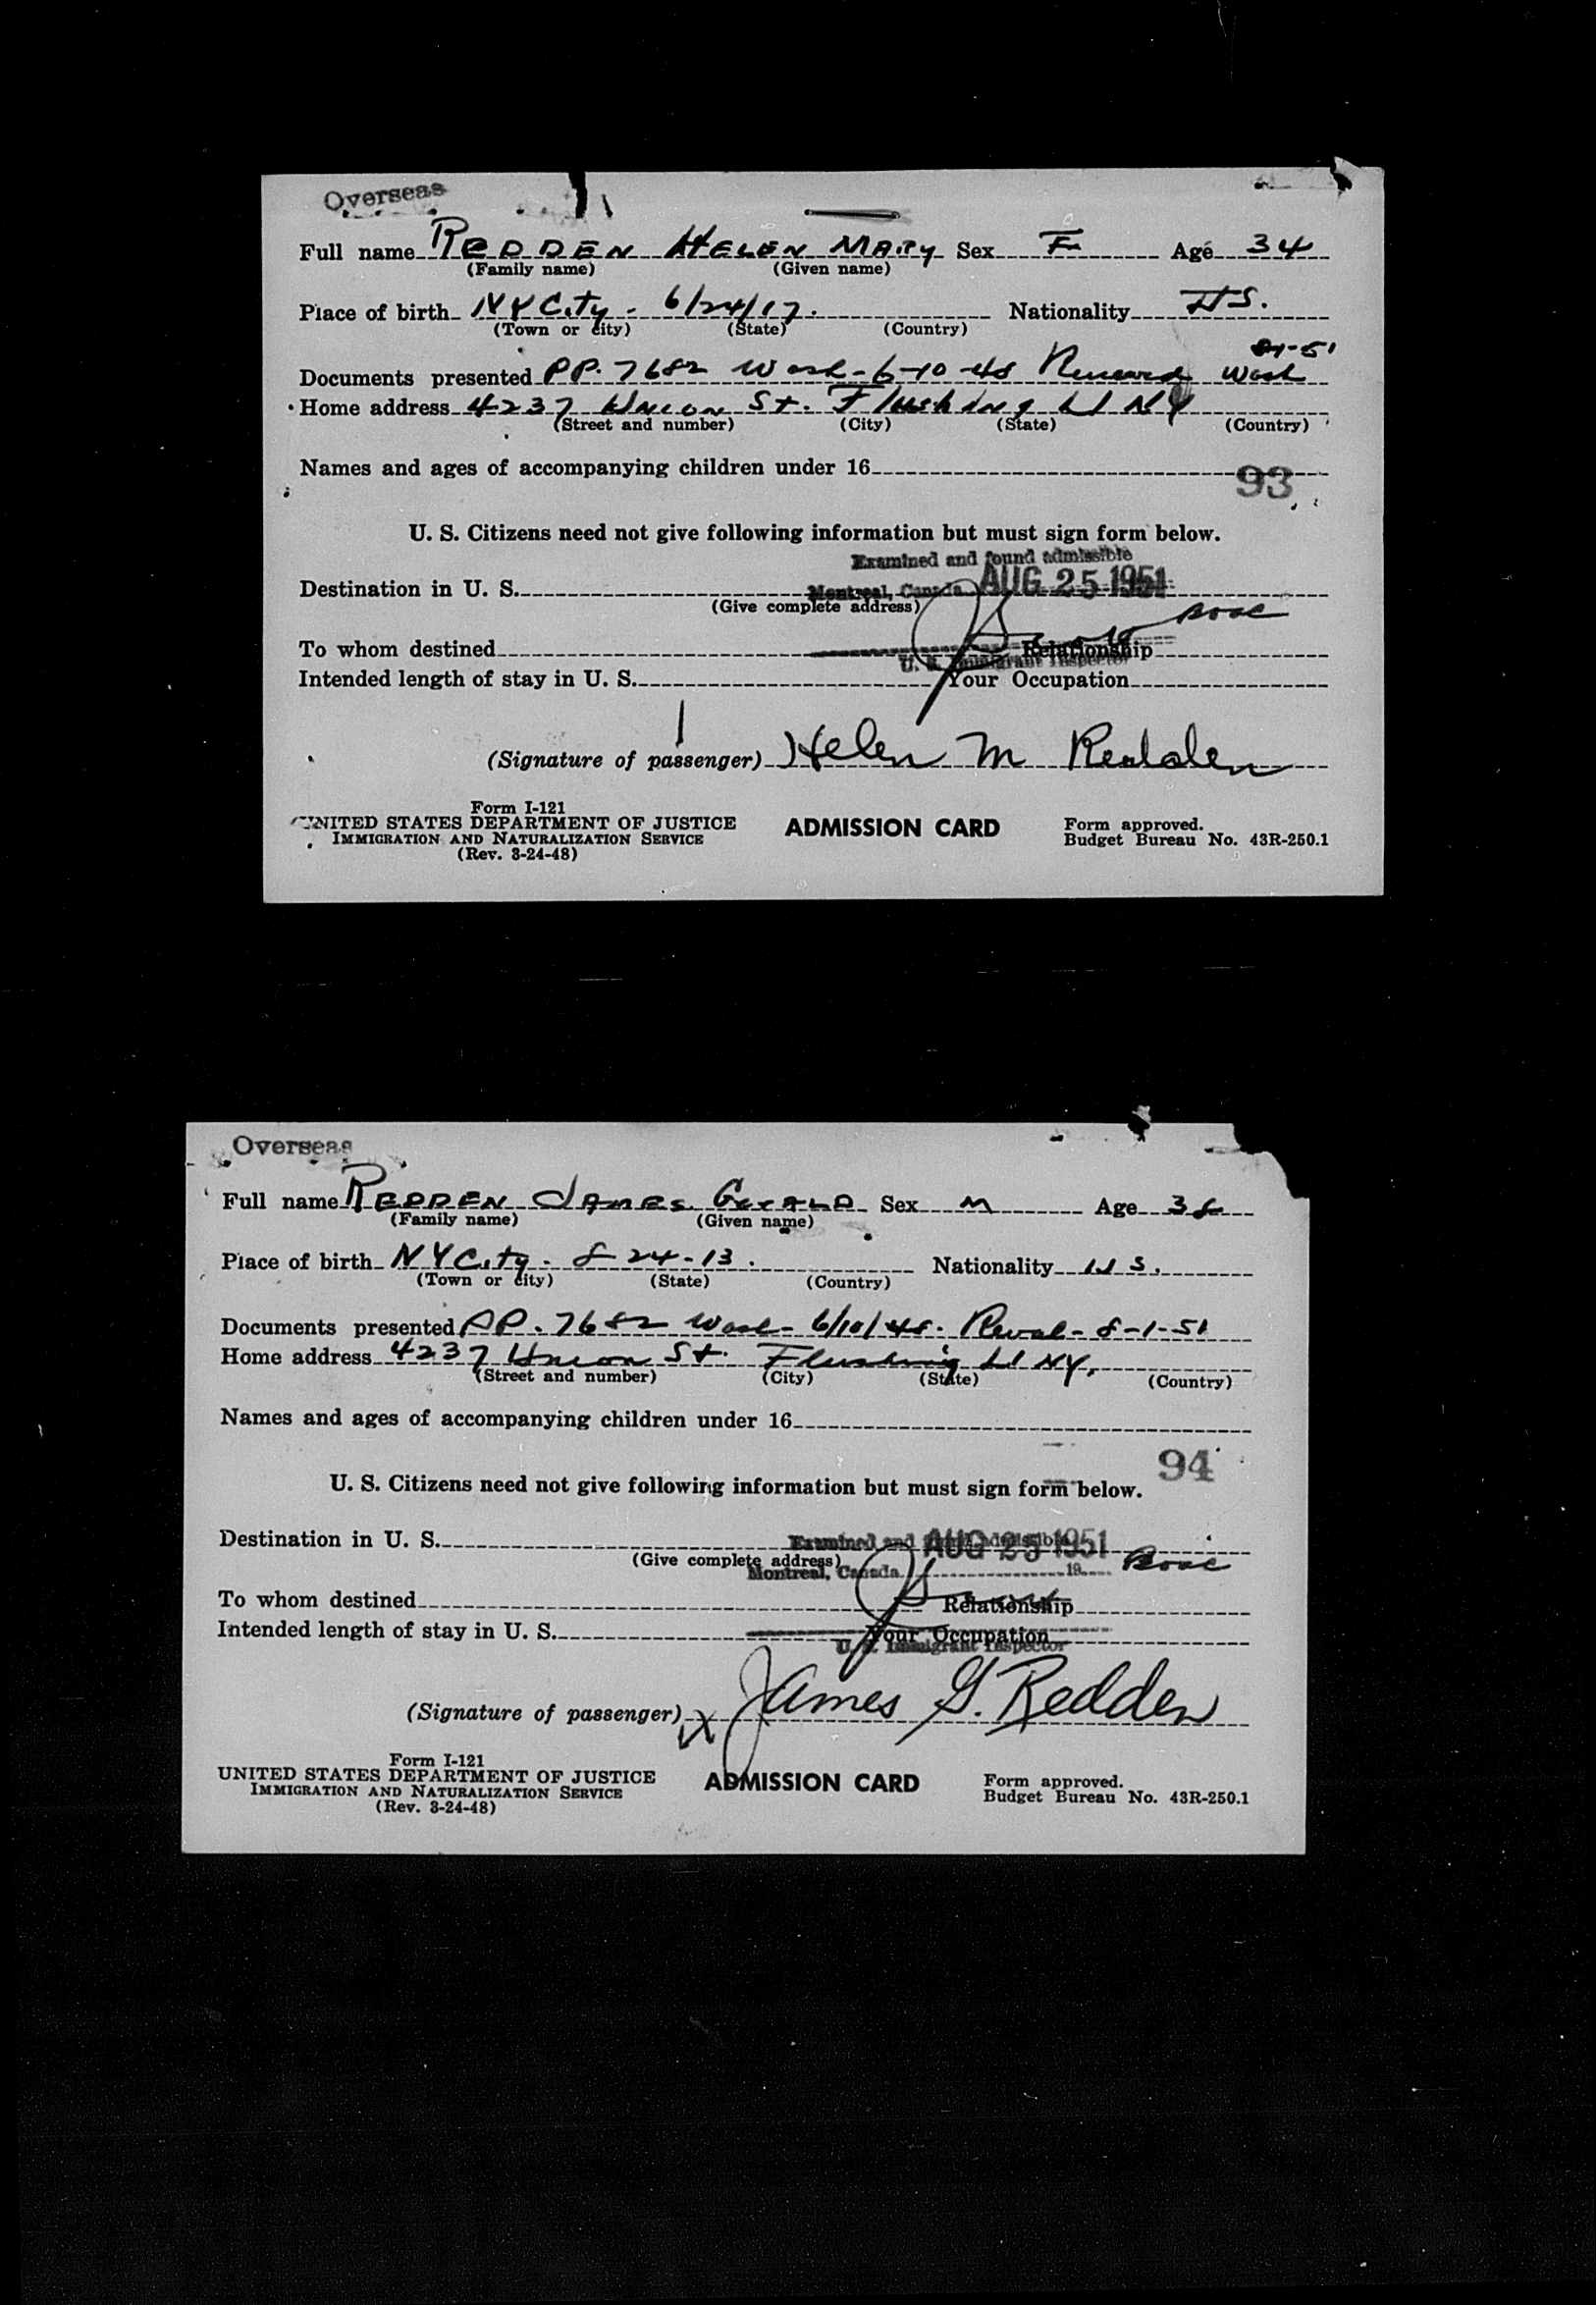 Overseas
Full name REDDEN HELEN MARY Sex F Age 34
(Family name) (Given name)
Place of birth NY City - 6/24/17. Nationality US.
(Town or city) (State) (Country)
Documents presented PP. 7682 Wash - 6-10-48 Renewed Wash
Home address 4237 Union St. Flushing LI NY
(Street and number) (City) (State) (Country)
Names and ages of accompanying children under 16
93
U. S. Citizens need not give following information but must sign form below.
Examined and found admissible
Destination in U. S. Montreal, Canada AUG 25 1951
(Give complete address)
To whom destined Relationship
U. S. Immigrant Inspector
Intended length of stay in U. S. Your Occupation
(Signature of passenger) Helen M Redden
Form I-121
UNITED STATES DEPARTMENT OF JUSTICE
IMMIGRATION AND NATURALIZATION SERVICE
(Rev. 3-24-48)
ADMISSION CARD
Form approved.
Budget Bureau No. 43R-250.1
Overseas
Full name REDDEN JAMES GERALD Sex M Age 38
(Family name) (Given name)
Place of birth NY City - 8-24-13. Nationality US.
(Town or city) (State) (Country)
Documents presented PP. 7682 Wash - 6/10/48. - 8-1-51
Home address 4237 Union St. Flushing LI NY.
(Street and number) (City) (State) (Country)
Names and ages of accompanying children under 16
94
U. S. Citizens need not give following information but must sign form below.
Destination in U. S. Examined and found admissible AUG 25 1951
(Give complete address)
Montreal, Canada. 19
To whom destined Relationship
Intended length of stay in U. S. Your Occupation
U. S. Immigrant Inspector
(Signature of passenger) X James G. Redden
Form I-121
UNITED STATES DEPARTMENT OF JUSTICE
IMMIGRATION AND NATURALIZATION SERVICE
(Rev. 3-24-48)
ADMISSION CARD
Form approved.
Budget Bureau No. 43R-250.1